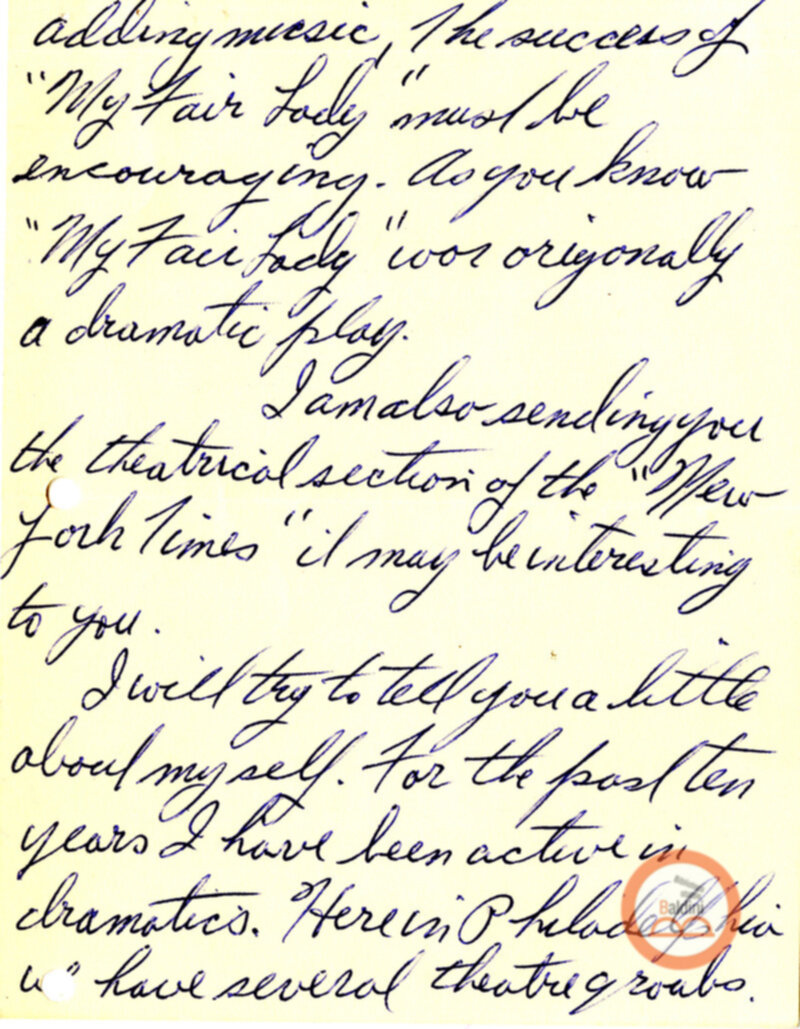 adding music, The success of
"My Fair Lady" must be
encouraging. As you know
"My Fair Lady" was origonally
a dramatic play.
I am also sending you
the theatrical section of the "New
York Times" it may be interesting
to you.
I will try to tell you a little
about myself. For the past ten
years I have been active in
dramatics. Here in Philadelphia
have several theatre groubs.
Baldini